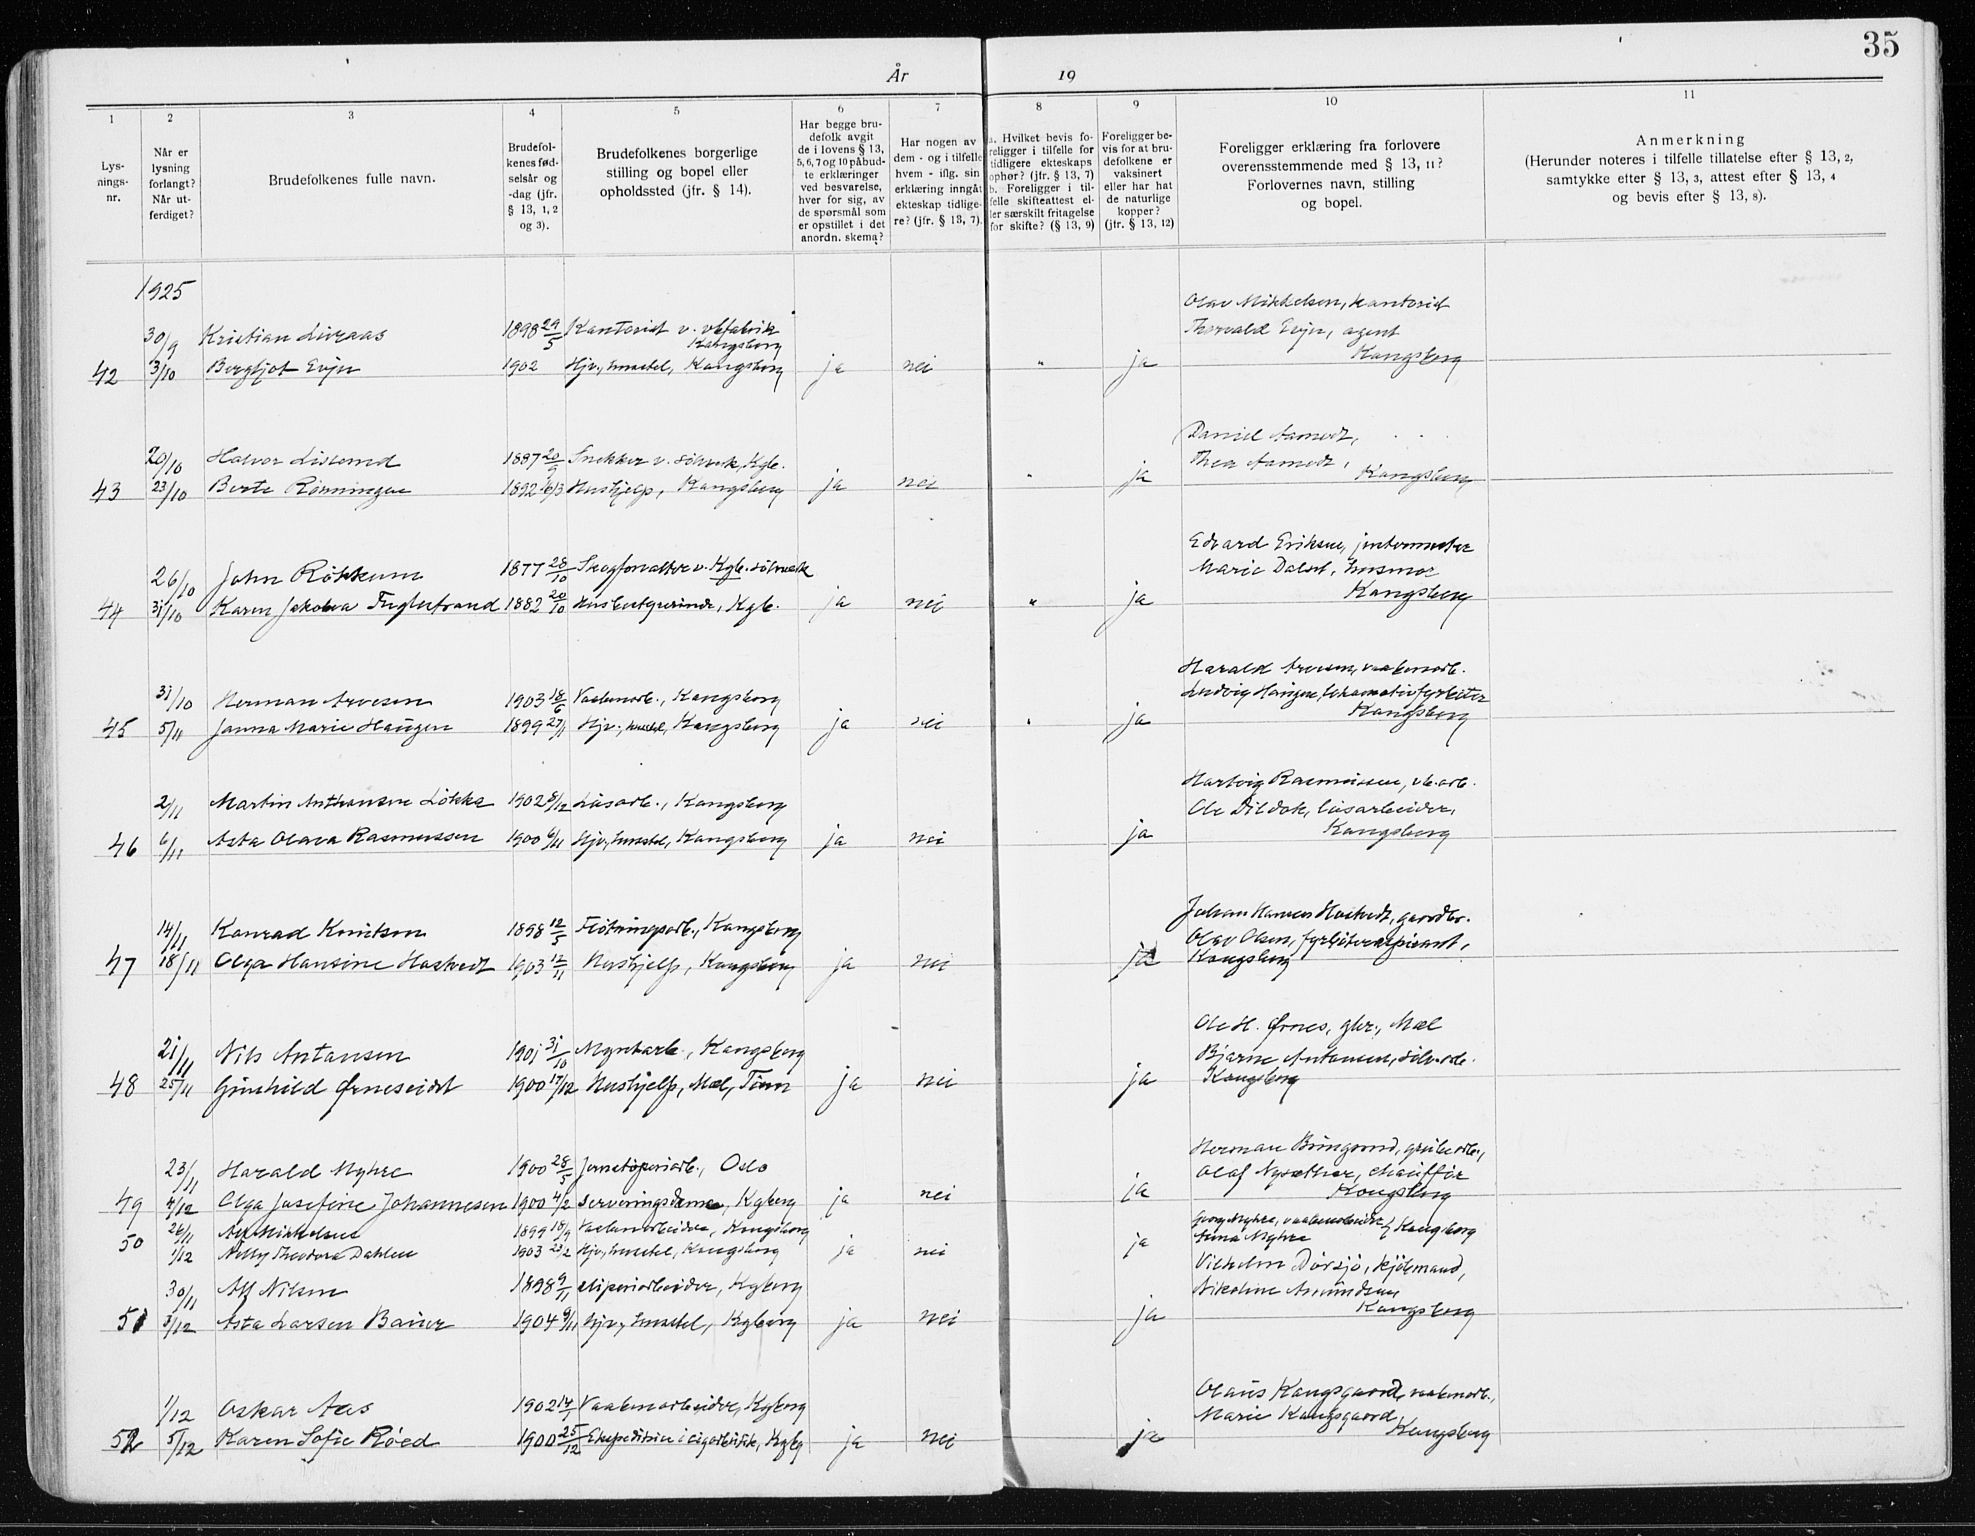 35
År 19
1 2 3 4 5 6 7 8 9 10 11
Lys-
nings-
nr.
Når er
lysning
forlangt?
Når ut-
ferdiget?
Brudefolkenes fulle navn.
Brudefol-
kenes fød-
selsår og
-dag (jfr.
§ 13, 1, 2
og 3).
Brudefolkenes borgerlige
stilling og bopel eller
opholdssted (jfr. § 14).
Har begge bru-
defolk avgit
de i lovens § 13,
5, 6, 7 og 10 påbud-
te erklæringer
ved besvarelse,
hver for sig, av
de spørsmål som
er opstillet i det
anordn. skema?
Har nogen av
dem - og i tilfelle
hvem - iflg. sin
erklæring inngåt
ekteskap tidlige-
re? (jfr. § 13, 7).
a. Hvilket bevis fo-
religger i tilfelle for
tidligere ekteskaps
ophør? (jfr. § 13, 7)
b. Foreligger i til-
felle skifteattest el-
ler særskilt fritagelse
for skifte? (§ 13, 9)
Foreligger be-
vis for at bru-
defolkene er
vaksinert
eller har hat
de naturlige
kopper?
(jfr. § 13, 12)
Foreligger erklæring fra forlovere
overensstemmende med § 13, 11?
Forlovernes navn, stilling
og bopel.
Anmerkning
(Herunder noteres i tilfelle tillatelse efter § 13, 2,
samtykke efter § 13, 3, attest efter § 13, 4
og bevis efter § 13, 8).
1925
Olav Mikkelsen, kontorist
30/9 Kristian Livraas 1898 29/5 Kontorist v. vbfabrik Thorvald Evju, agent
Kongsberg
42 3/10 Bergljot Evju 1902 Hjv., husstel, Kongsberg ja nei " ja Kongsberg
Daniel Aamodt,
20/10 Halvor 1887 20/9 Snekker v. sölvverk, Kgb. Thea Aamodt,
43 23/10 Berte Rönningen 1892 16/3 Hushjelp, Kongsberg ja nei " ja Kongsberg
Edvard Eriksen,
26/10 John Rökkum 1877 28/10 Skogforvalter v. Kgb. sölvverk Marie husmor
44 31/10 Karen Jakobea Fuglestrand 1882 20/10 Husbestyrerinde, Kgb. ja nei " ja Kongsberg
Harald Arvesen, vaabenarb.
31/10 Herman Arvesen 1903 18/6 Vaabenarb., Kongsberg Ludvig Haugen, lokomotivfyrböter
45 5/11 Janna Marie Haugen 1899 27/11 Hjv., husstel, Kongsberg ja nei " ja Kongsberg
Hartvig Rasmussen, vb.arb.
2/11 Martin Anthonsen Lökka 1902 8/12 Lösarb., Kongsberg Ole lösarbeider,
46 6/11 Asta Olava Rasmussen 1900 6/11 Hjv., husstel, Kongsberg ja nei ja Kongsberg
Johan Hansen Hostvedt, gaardbr.
14/11 Konrad Knutsen 1898 12/5 Flötningsarb., Kongsberg Olav Olsen, fyrböteraspirant,
47 18/11 Olga Hansine Hostvedt 1903 12/11 Hushjelp, Kongsberg ja nei ja Kongsberg
Ole H. Ørnes, gbr., Mæl
21/11 Nils Antonsen 1901 31/10 Myntarb., Kongsberg Bjarne Antonsen, sölvarb.
48 25/11 Gunhild Ørneseidet 1900 17/12 Hushjelp, Mæl, Tinn ja nei ja Kongsberg
Herman grubearb.,
23/11 Harald Myhre 1900 28/5 Jernstöperiarb., Oslo Olaf Nysæther, chaufför
49 4/12 Olga Josefine Johannesen 1900 4/2 Serveringsdame, Kgberg ja nei ja Kongsberg
26/11 Alf Mikkelsen 1899 18/9 Vaabenarbeider, Kongsberg Georg Myhre, vaabenarbeider } Kongsberg
50 1/12 Nelly Theodora Dahlen 1903 23/2 Hjv., husstel, Kongsberg ja nei ja Anna Myhre
Vilhelm Dörsjö, kjölmand,
30/11 Alf Nilsen 1898 9/11 Sliperiarbeider, Kgberg Nikoline Amundsen
51 3/12 Asta Larsen Bauer 1904 9/11 Hjv., husstel, Kgberg ja nei ja Kongsberg
Olaus Kongsgaard, vaabenarb.,
1/12 Oskar Aas 1902 14/1 Vaabenarbeider, Kgberg Marie Kongsgaard,
52 5/12 Karen Sofie Röed 1900 25/12 Ekspeditrice i cigarbutik, Kgbg ja nei ja Kongsberg